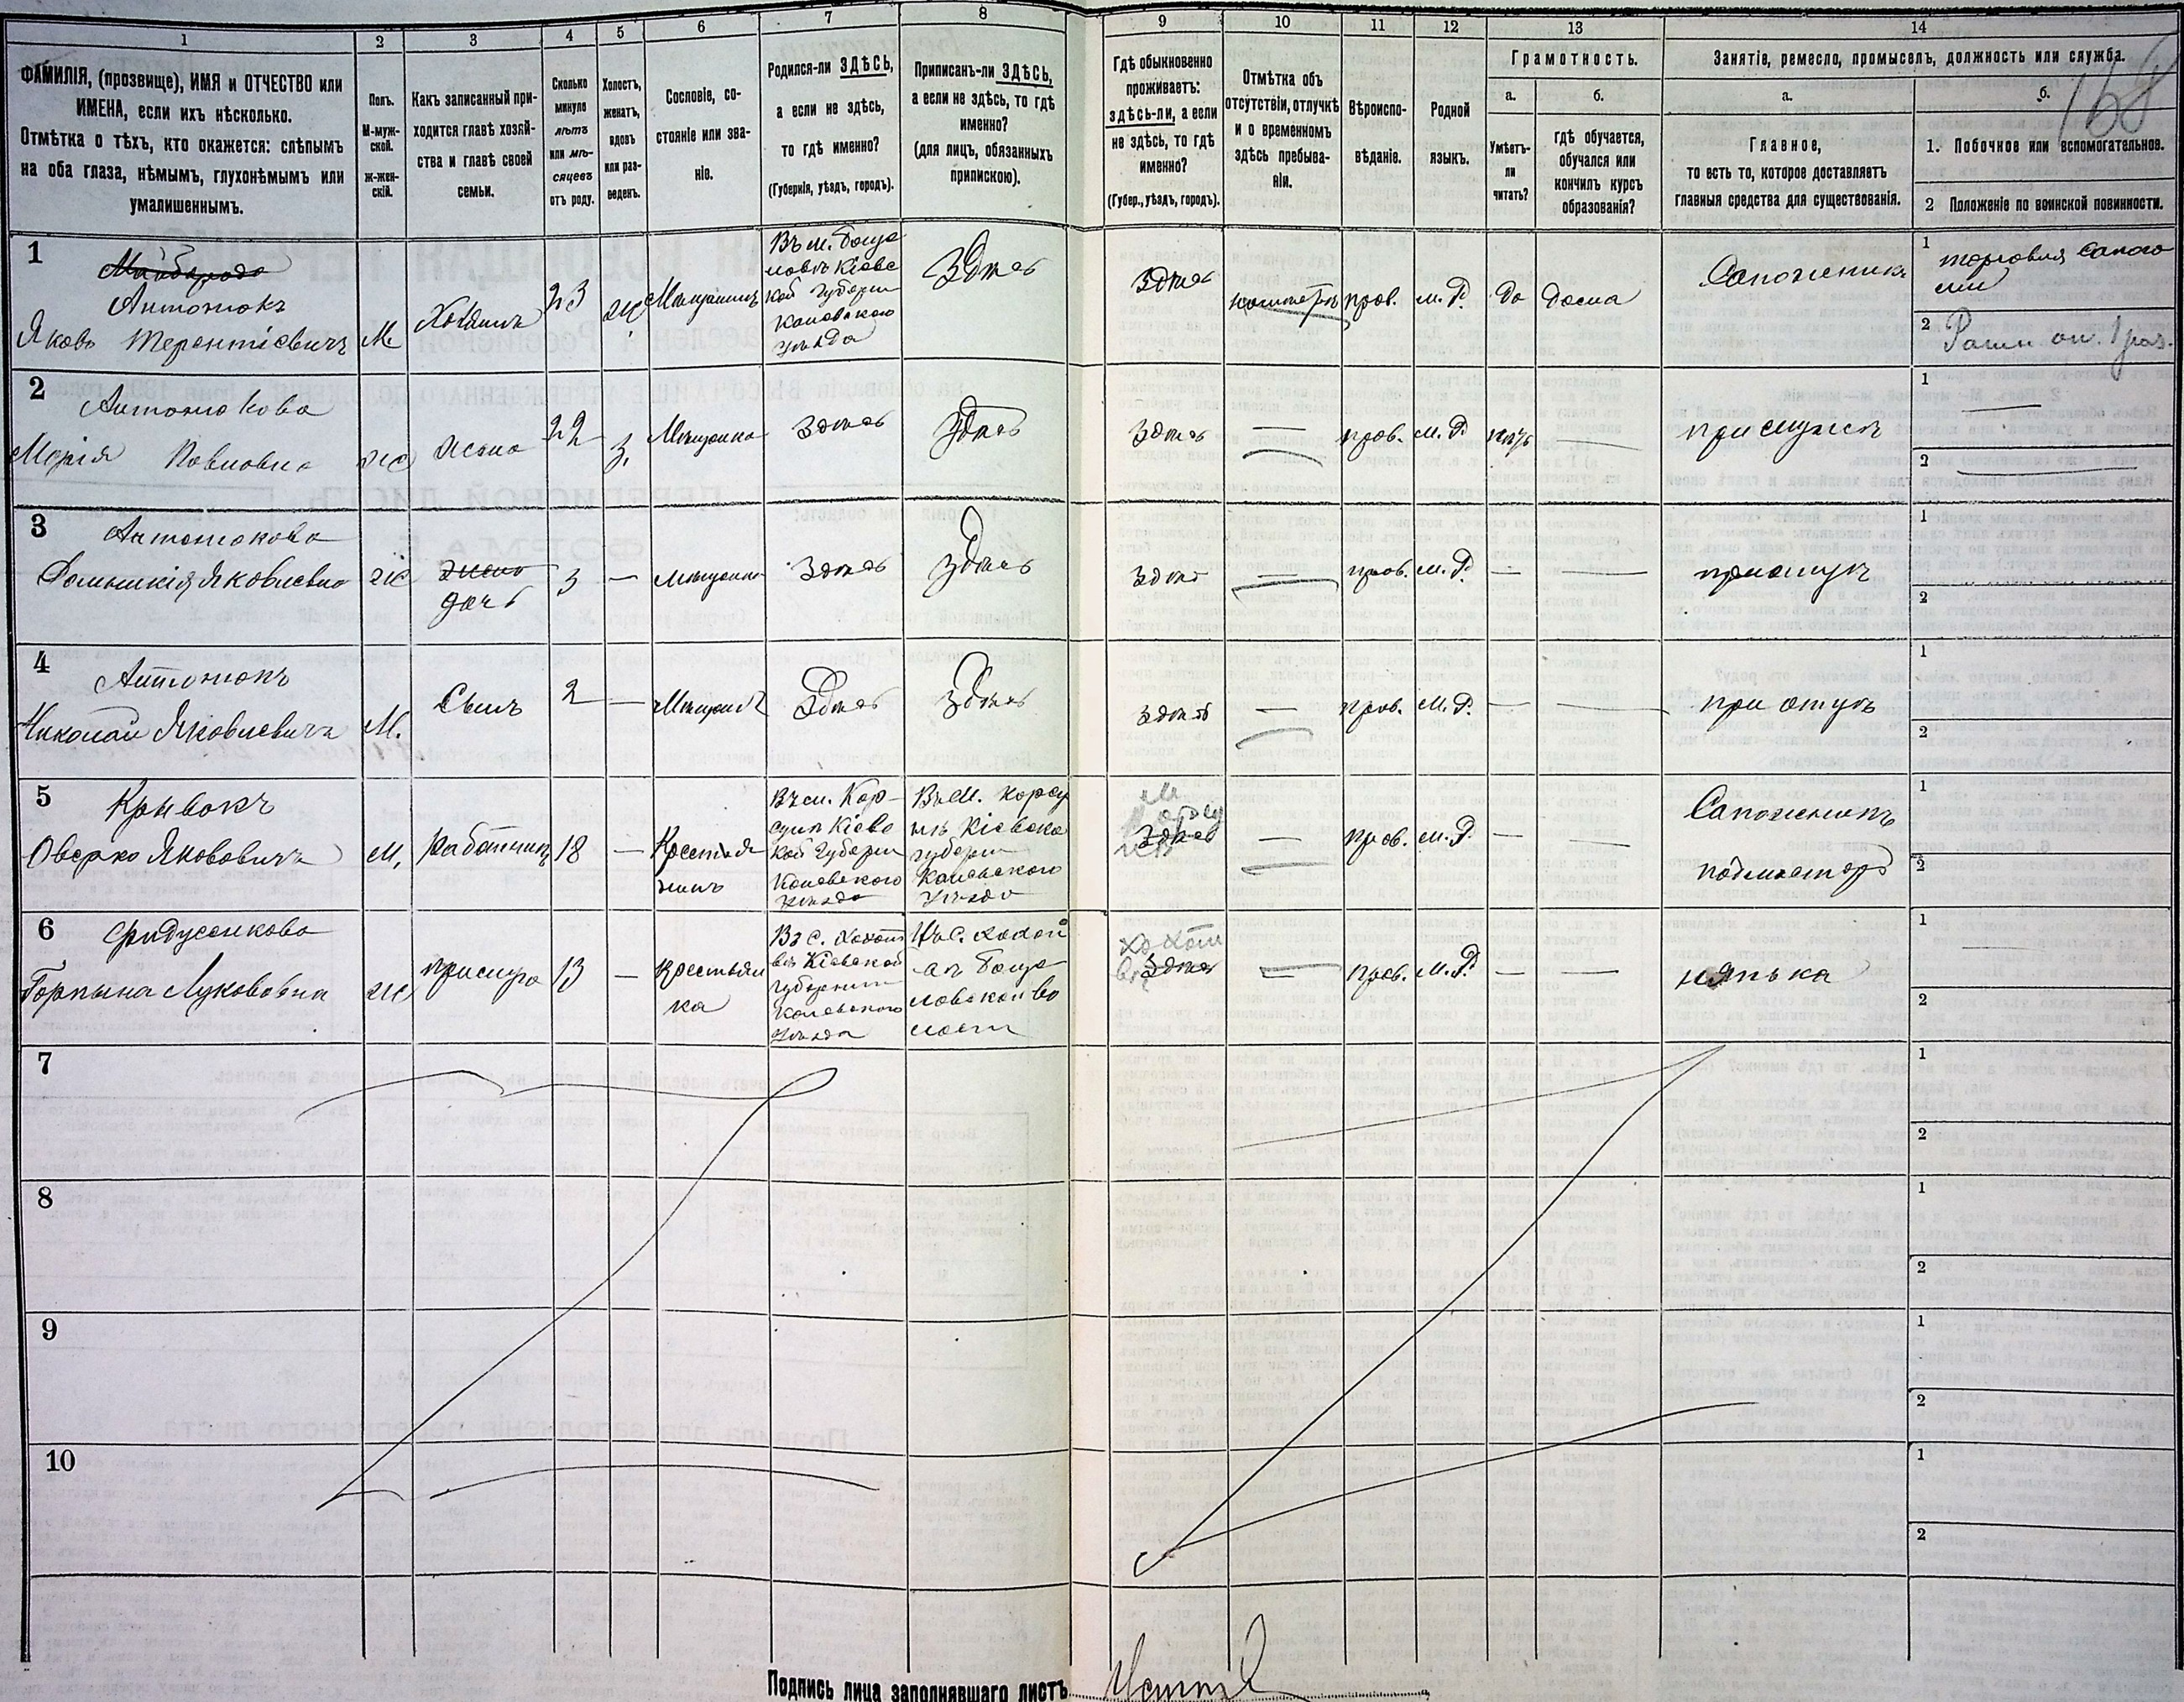 1
2
3
4
5
6
7
8
9
10
11
12
13
14
ФАМИЛІЯ, (прозвище), ИМЯ и ОТЧЕСТВО или
ИМЕНА, если ихъ нѣсколько.
Отмѣтка о тѣхъ, кто окажется: слѣпымъ
на оба глаза, нѣмымъ, глухонѣмымъ или
умалишеннымъ.
Полъ.
М-муж-
ской.
Ж-жен-
скій.
Какъ записанный при-
ходится главѣ хозяй-
ства и главѣ своей
семьи.
Сколько
минуло
лѣтъ
или мѣ-
сяцевъ
отъ роду.
Холостъ,
женатъ,
вдовъ
или раз-
веденъ.
Сословіе, со-
стояніе или зва-
ніе.
Родился-ли ЗДѢСЬ,
а если не здѣсь,
то гдѣ именно?
(Губернія, уѣздъ, городъ).
Приписанъ-ли ЗДѢСЬ,
а если не здѣсь, то гдѣ
именно?
(для лицъ, обязанныхъ
припискою).
Гдѣ обыкновенно
проживаетъ:
здѣсь-ли, а если
не здѣсь, то гдѣ
именно?
(Губер., уѣздъ, городъ).
Отмѣтка объ
отсутствіи, отлучкѣ
и о временномъ
здѣсь пребыва-
ніи.
Вѣроиспо-
вѣданіе.
Родной
языкъ.
Грамотность.
а.
Умѣетъ-
ли
читать?
б.
гдѣ обучается,
обучался или
кончилъ курсъ
образованія?
Занятіе, ремесло, промыселъ, должность или служба.
а.
Главное,
то есть то, которое доставляетъ
главныя средства для существованія.
б.
168
1. Побочное или вспомогательное.
2 Положеніе по воинской повинности.
1
Майборода
Антонюкъ
Яковъ Терентіевичъ
М.
Хозяинъ
23
Ж
Мѣщанинъ
Въ м. Богу
славѣ Кіевс
кой губерни
Каневскаго
уѣзда
Здѣсь
Здѣсь
прав.
м. Р.
да
дома
Сапожникъ
1
торговля сапога
ми
2
2
Антонюкова
Марія Павловна
Ж
жена
22
З.
Мѣщанка
Здѣсь
Здѣсь
Здѣсь
прав.
м. Р.
нѣтъ
при мужѣ
1
2
3
Антонюкова
Яковлевна
Ж
жена
дочь
3
Мѣщанка
Здѣсь
Здѣсь
Здѣсь
прав.
м. Р.
при отцѣ
1
2
4
Антонюкъ
Николай Яковлевичъ
М.
Сынъ
2
Мѣщанинъ
Здѣсь
Здѣсь
Здѣсь
прав.
м. Р.
при отцѣ
1
2
5
Крывокъ
Оверко Яковович
М.
Работникъ
18
Крестья
нинъ
Въ м. Кор-
сунѣ Кіевс
кой губерни
Каневского
уѣзда
Въ м. Корсу
нѣ Кіевско
губерни
Каневского
уѣзда
м
Корсу
Здѣсь
нѣ
прав.
м. Р.
Сапожникъ
подмастеръ
1
2
6
Горпына Луковна
Ж
прислуга
13
крестьян
ка
Въ с. Хохит
вѣ Кіевской
губерніи
Каневского
уѣзда
Здѣсь
прав.
м. Р.
нянька
1
2
7
1
2
8
1
2
9
1
2
10
1
2
Подпись лица заполнявшаго листъ